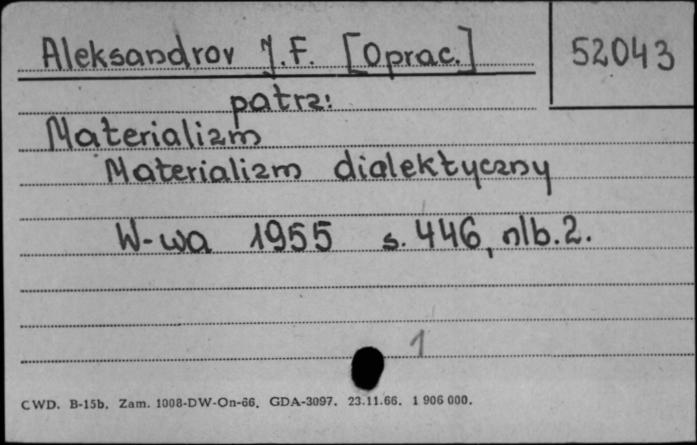 Aleksandrov J.F. [Oprac.] 52043
patrz:
Materializm
Materializm dialektyczny
W-wa 1955 s. 446, nlb. 2.
1
CWD. B-15b. Zam. 1008-DW-On-66. GDA-3097. 23.11.66. 1 906 000.